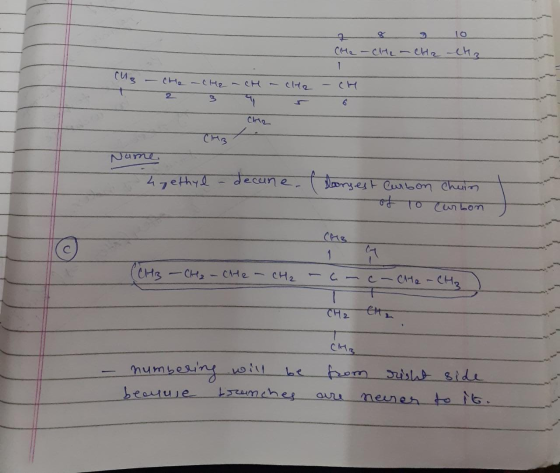 7 8 9 10
CH2 – CH2 – CH2 – CH3
|
CH3 – CH2 – CH2 – CH – CH2 – CH
1 2 3 4 | 5 6
CH2
CH3 /
Name
4, ethyl - decane. ( longest Carbon chain
of 10 Carbon )
CH3
(C)
| |
CH3 – CH2 – CH2 – CH2 – C – C – CH2 – CH3
| |
CH2 CH2
|
CH3
– numbering will be from right side
because branches are nearer to it.